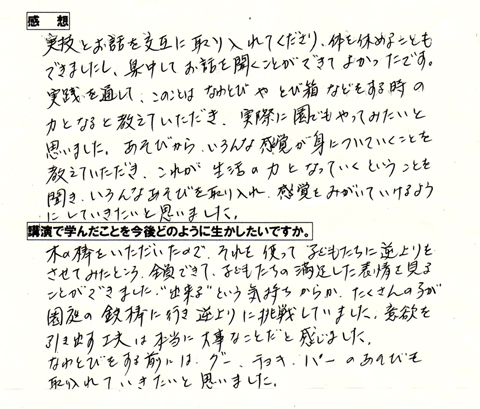 感 想
実技とお話を交互に取り入れてくださり、体を休めることも
できましたし、集中してお話を聞くことができてよかったです。
実践を通して、このことは なわとびや とび箱 などをする時の
力となると教えていただき、実際に園でもやってみたいと
思いました。あそびから、いろんな感覚が身についていくことを
教えていただき、これが 生活の力となっていく ということを
聞き、いろんなあそびを取り入れ、感覚をみがいていけるよう
にしていきたいと思いました。
講演で学んだことを今後どのように生かしたいですか。
木の棒をいただいたので、それを使って 子どもたちに逆上りを
させてみたところ、全員できて、子どもたちの満足した表情を見る
ことができました。"出来る"という気持ちからか、たくさんの子が
園庭の鉄棒に行き逆上りに挑戦していました。意欲を
引き出す工夫は本当に大事なことだと感じました。
なわとびをする前には、グー、チョキ、パーのあそびも
取入れていきたいと思いました。